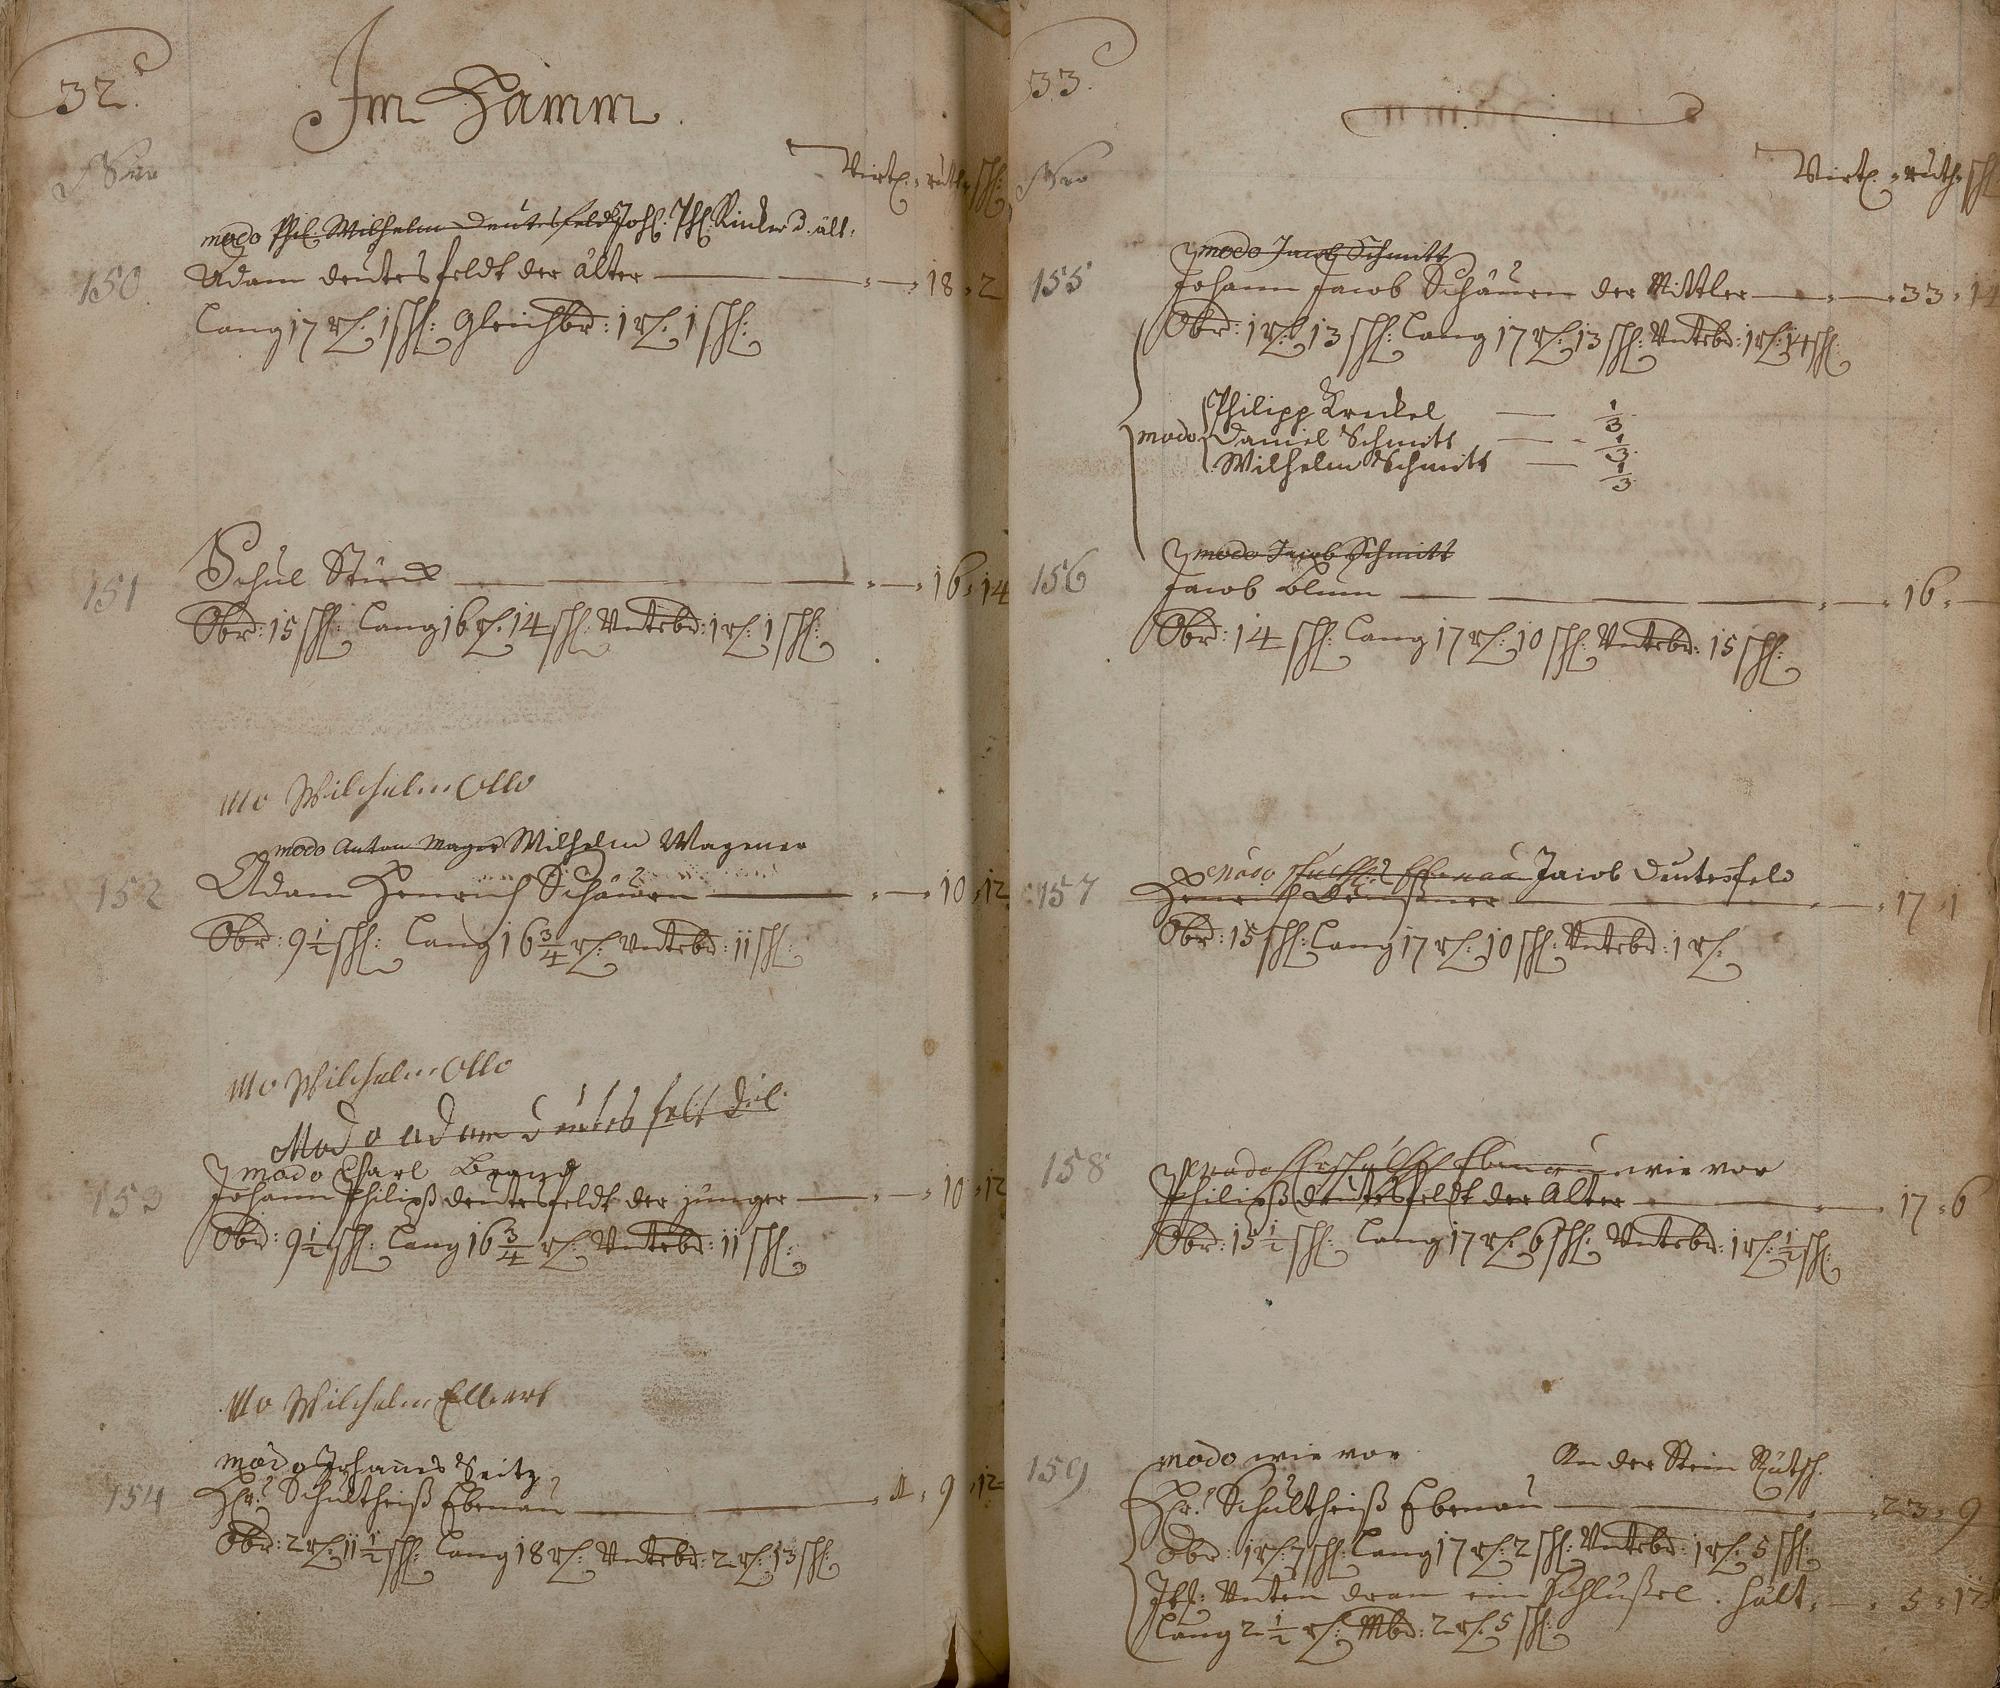 32.
Im Hamm.
Nro
Virt. ruth. sch.
modo Phil. Wilhelm Deutesfeldt Joh. Ph. Rinker d. ält.
150. Adam deutesfeldt der älter 18 2
Lang 17 r. 1 sch: Gleichbr: 1 r. 1 sch:
151 Schul Stück 16 14
Obr: 15 sch: Lang 16 r. 14 sch: Vntrbr: 1 r. 1 sch:
Mo Wilhelm Otto
modo Anton Mayer Wilhelm Wagener
152 Adam Henrich Schäuren 10 12
Obr: 9 1/2 sch: Lang 16 3/4 r: Vntrbr: 11 sch:
Mo Wilhelm Otto
Modo adam deutesfelt
modo Charl Brand
153 Johann Philipß deutesfeldt der Junger 10 12
Obr: 9 1/2 sch: Lang 16 3/4 r: Vntrbr: 11 sch:
Mo Wilhelm Elbert
modo Johanes Seitz
154 Hr. Schultheiß Ebenau 1 9 12
Obr: 2 r: 11 1/2 sch: Lang 18 r: Vntrbr: 2 r: 13 sch:
33.
Nro
Virt. ruth. sch
modo Jacob Schmitt
155 Johann Jacob Schäuren der Mittler 33 14
Obr: 1 r: 13 sch: Lang 17 r: 13 sch: Vntrbr: 1 r: 14 sch:
Philipp Krekel 1/3
modo Daniel Schmitt 1/3
Wilhelm Schmitt 1/3
modo Jacob Schmitt
156 Jacob Blum 16
Obr: 14 sch: Lang 17 r: 10 sch: Vntrbr: 15 sch:
modo Ebenau Jacob Deutesfeld
157 Henrich 17 1
Obr: 15 sch: Lang 17 r: 10 sch: Vntrbr: 1 r:
modo Ebenau wie vor
158 Philipß deutesfeldt der Älter 17 6
Obr: 15 1/2 sch: Lang 17 r: 6 sch: Vntrbr: 1 r: 1/2 sch:
modo wie vor An der Stein Rütsch.
159 Hr. Schultheiß Ebenau 23 9
Obr: 1 r: 7 sch: Lang 17 r: 2 sch: Vntrbr: 1 r: 5 sch:
Vnten dran ein Schlußel. hält 5 12
Lang 2 1/2 r: Mbr: 2 r: 5 sch: